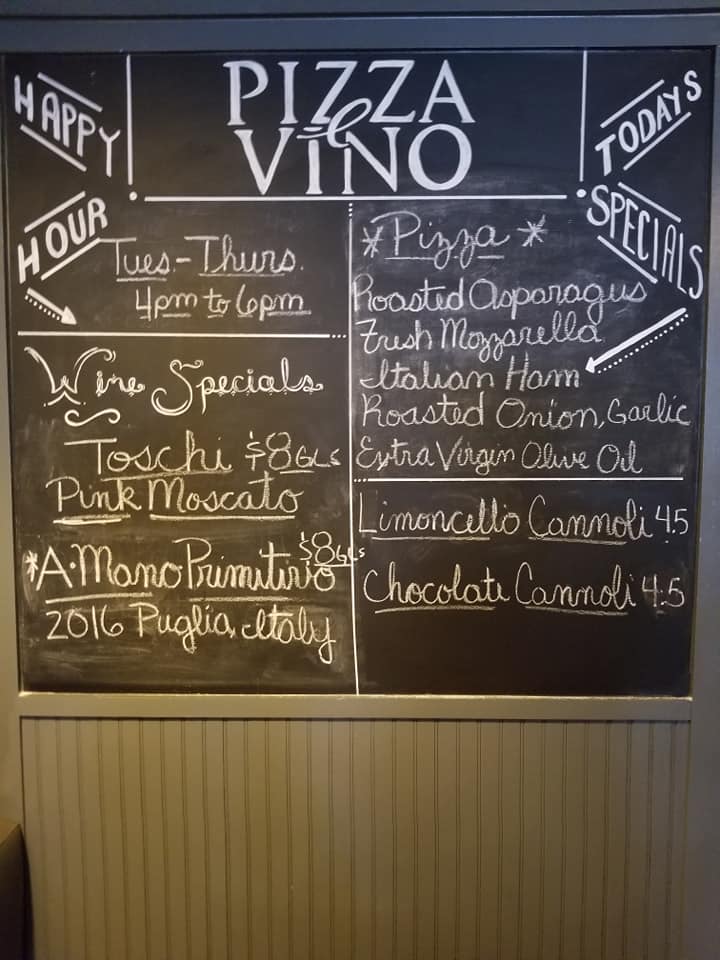 HAPPY
HOUR
PIZZA
e
VINO
TODAYS
SPECIALS
Tues.-Thurs.
4pm to 6pm
Wine Specials
Toschi $8GLS
Pink Moscato
*A·Mano Primitivo $8GLS
2016 Puglia, Italy
*Pizza*
Roasted Asparagus
Fresh Mozzarella
Italian Ham
Roasted Onion, Garlic
Extra Virgin Olive Oil
Limoncello Cannoli 4.5
Chocolate Cannoli 4.5